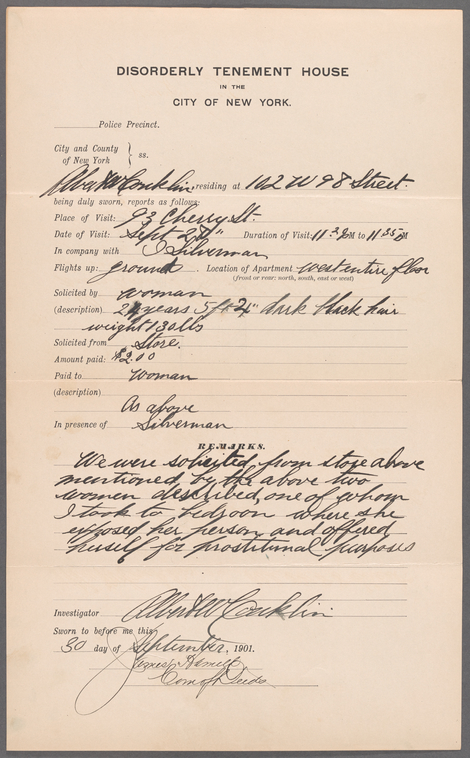 DISORDERLY TENEMENT HOUSE
IN THE
CITY OF NEW YORK.
Police Precinct.
City and County
of New York } ss.
Albert W Conklin, residing at 102 W 98 Street.
being duly sworn, reports as follows:
Place of Visit: 93 Cherry St.
Date of Visit: Sept 28" Duration of Visit: 11 30 PM to 11 35 PM
In company with C Silverman
Flights up: ground. Location of Apartment west entire floor
(front or rear: north, south, east or west)
Solicited by woman
(description) 24 years 5 ft 2" dark black hair
weight 130 lbs
Solicited from Store.
Amount paid: $2.00
Paid to woman
(description)
As above
In presence of Silverman
REMARKS.
We were solicited, from store above
mentioned, by the above two
women described, one of whom
I took to bedroom where she
exposed her person and offered
herself for prostitutional purposes
Investigator Albert W Conklin
Sworn to before me this
30 day of September, 1901.
Com of Deeds